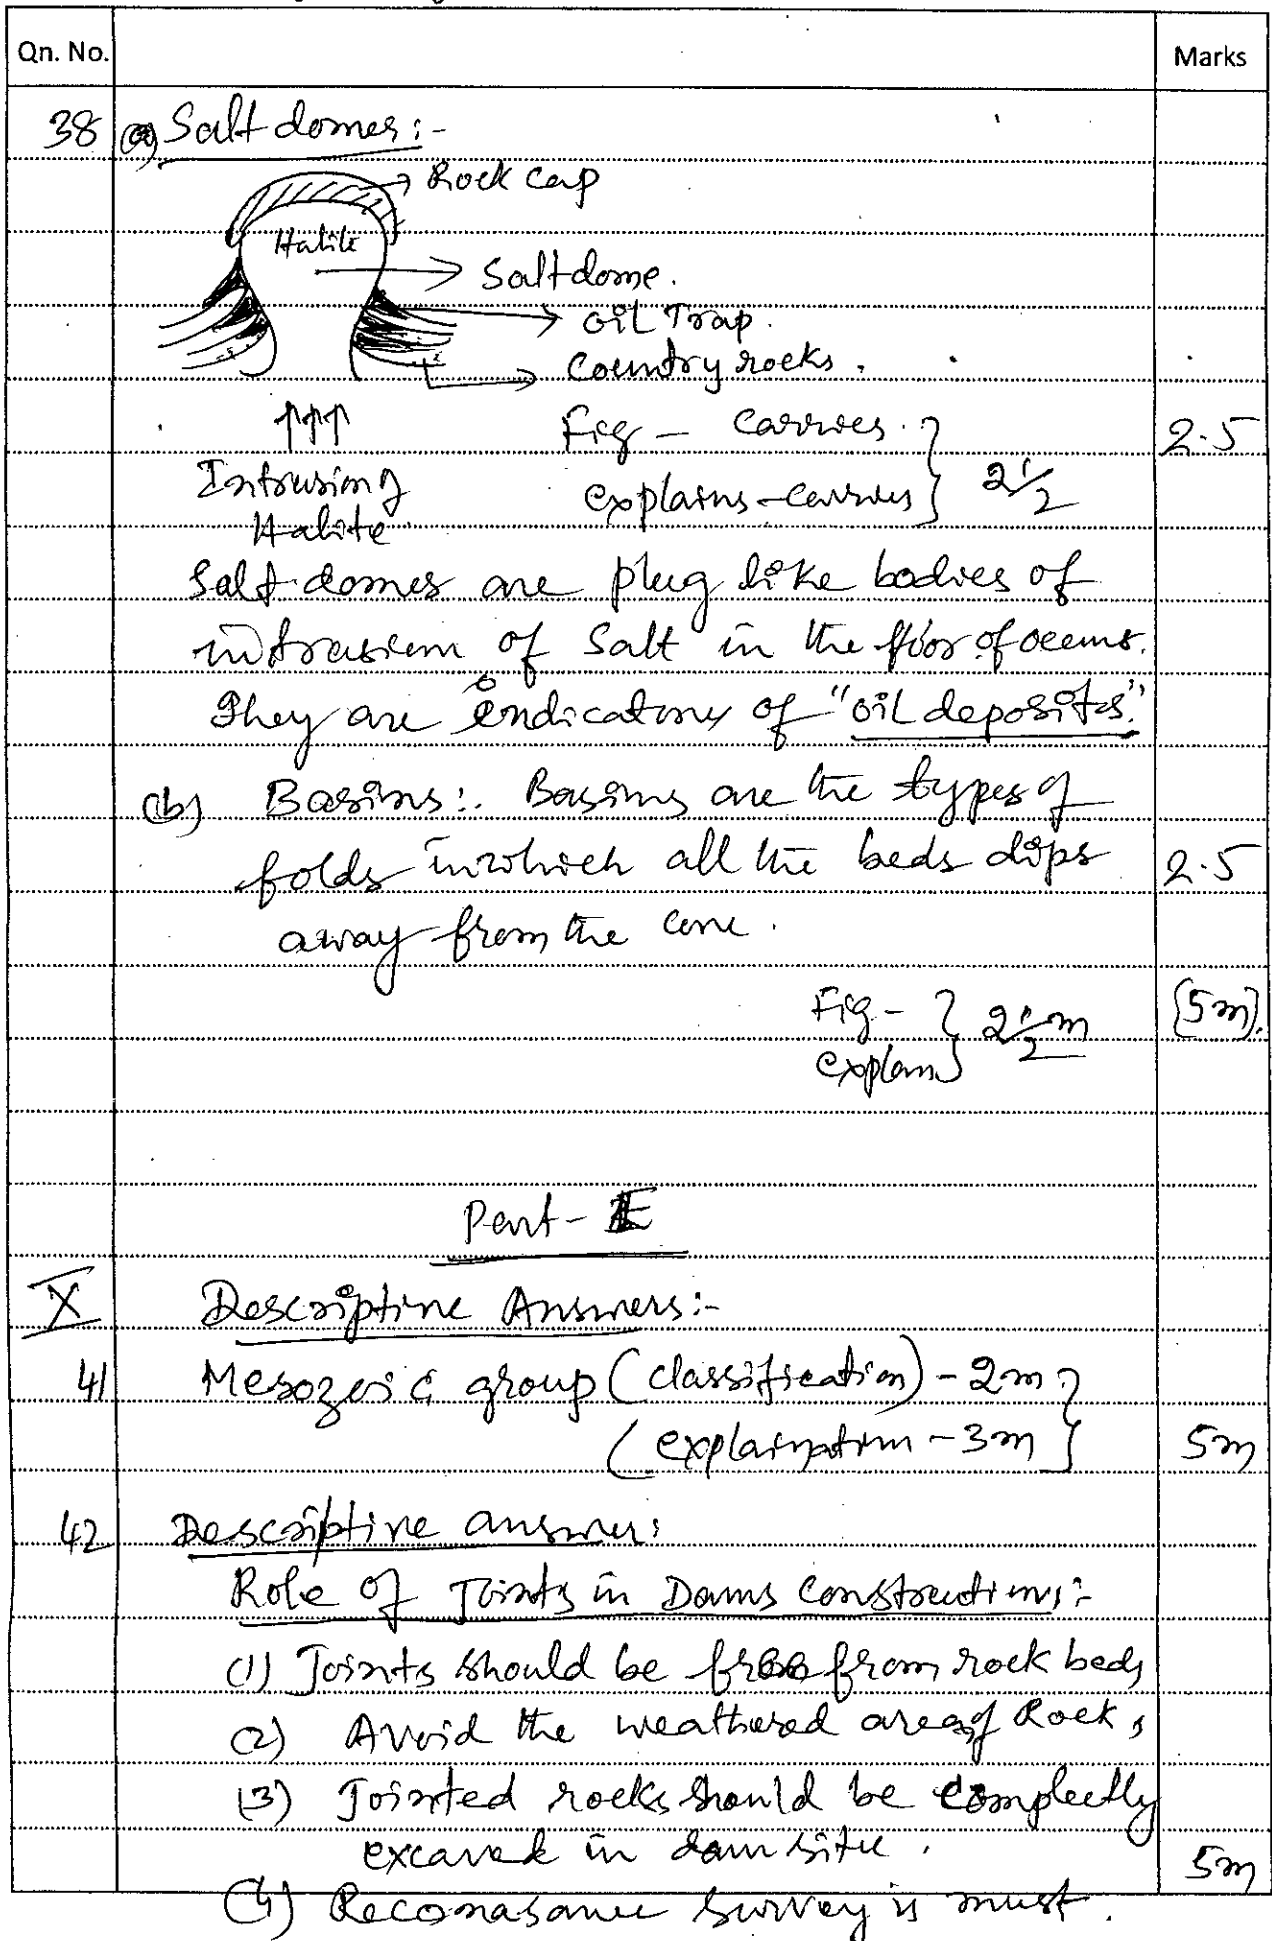 Qn. No. Marks
38 (a) Salt domes:-
→ Rock cap
Halite
→ Saltdome.
→ oil Trap.
→ Country rocks.
↑↑↑ Fig - Carries. } 2.5
Intrusing explains - carries } 2 1/2
Halite
Salt domes are plug like bodies of
intrusion of Salt in the floor of oceans.
They are indicators of "oil deposits."
(b) Basins:. Basins are the types of
folds in which all the beds dips 2.5
away from the core.
Fig - } 2 1/2 m (5m).
explain }
Part - E
X Descriptive Answers:-
41 Mesozoic group (classification) - 2m }
(explaination - 3m } 5m
42 Descriptive answer:
Role of Joints in Dams Constructions:-
(1) Joints should be free from rock beds
(2) Avoid the weathered area of Rocks
(3) Jointed rocks should be completly
excaved in dam site. 5m
(4) Reconasance Survey is must.